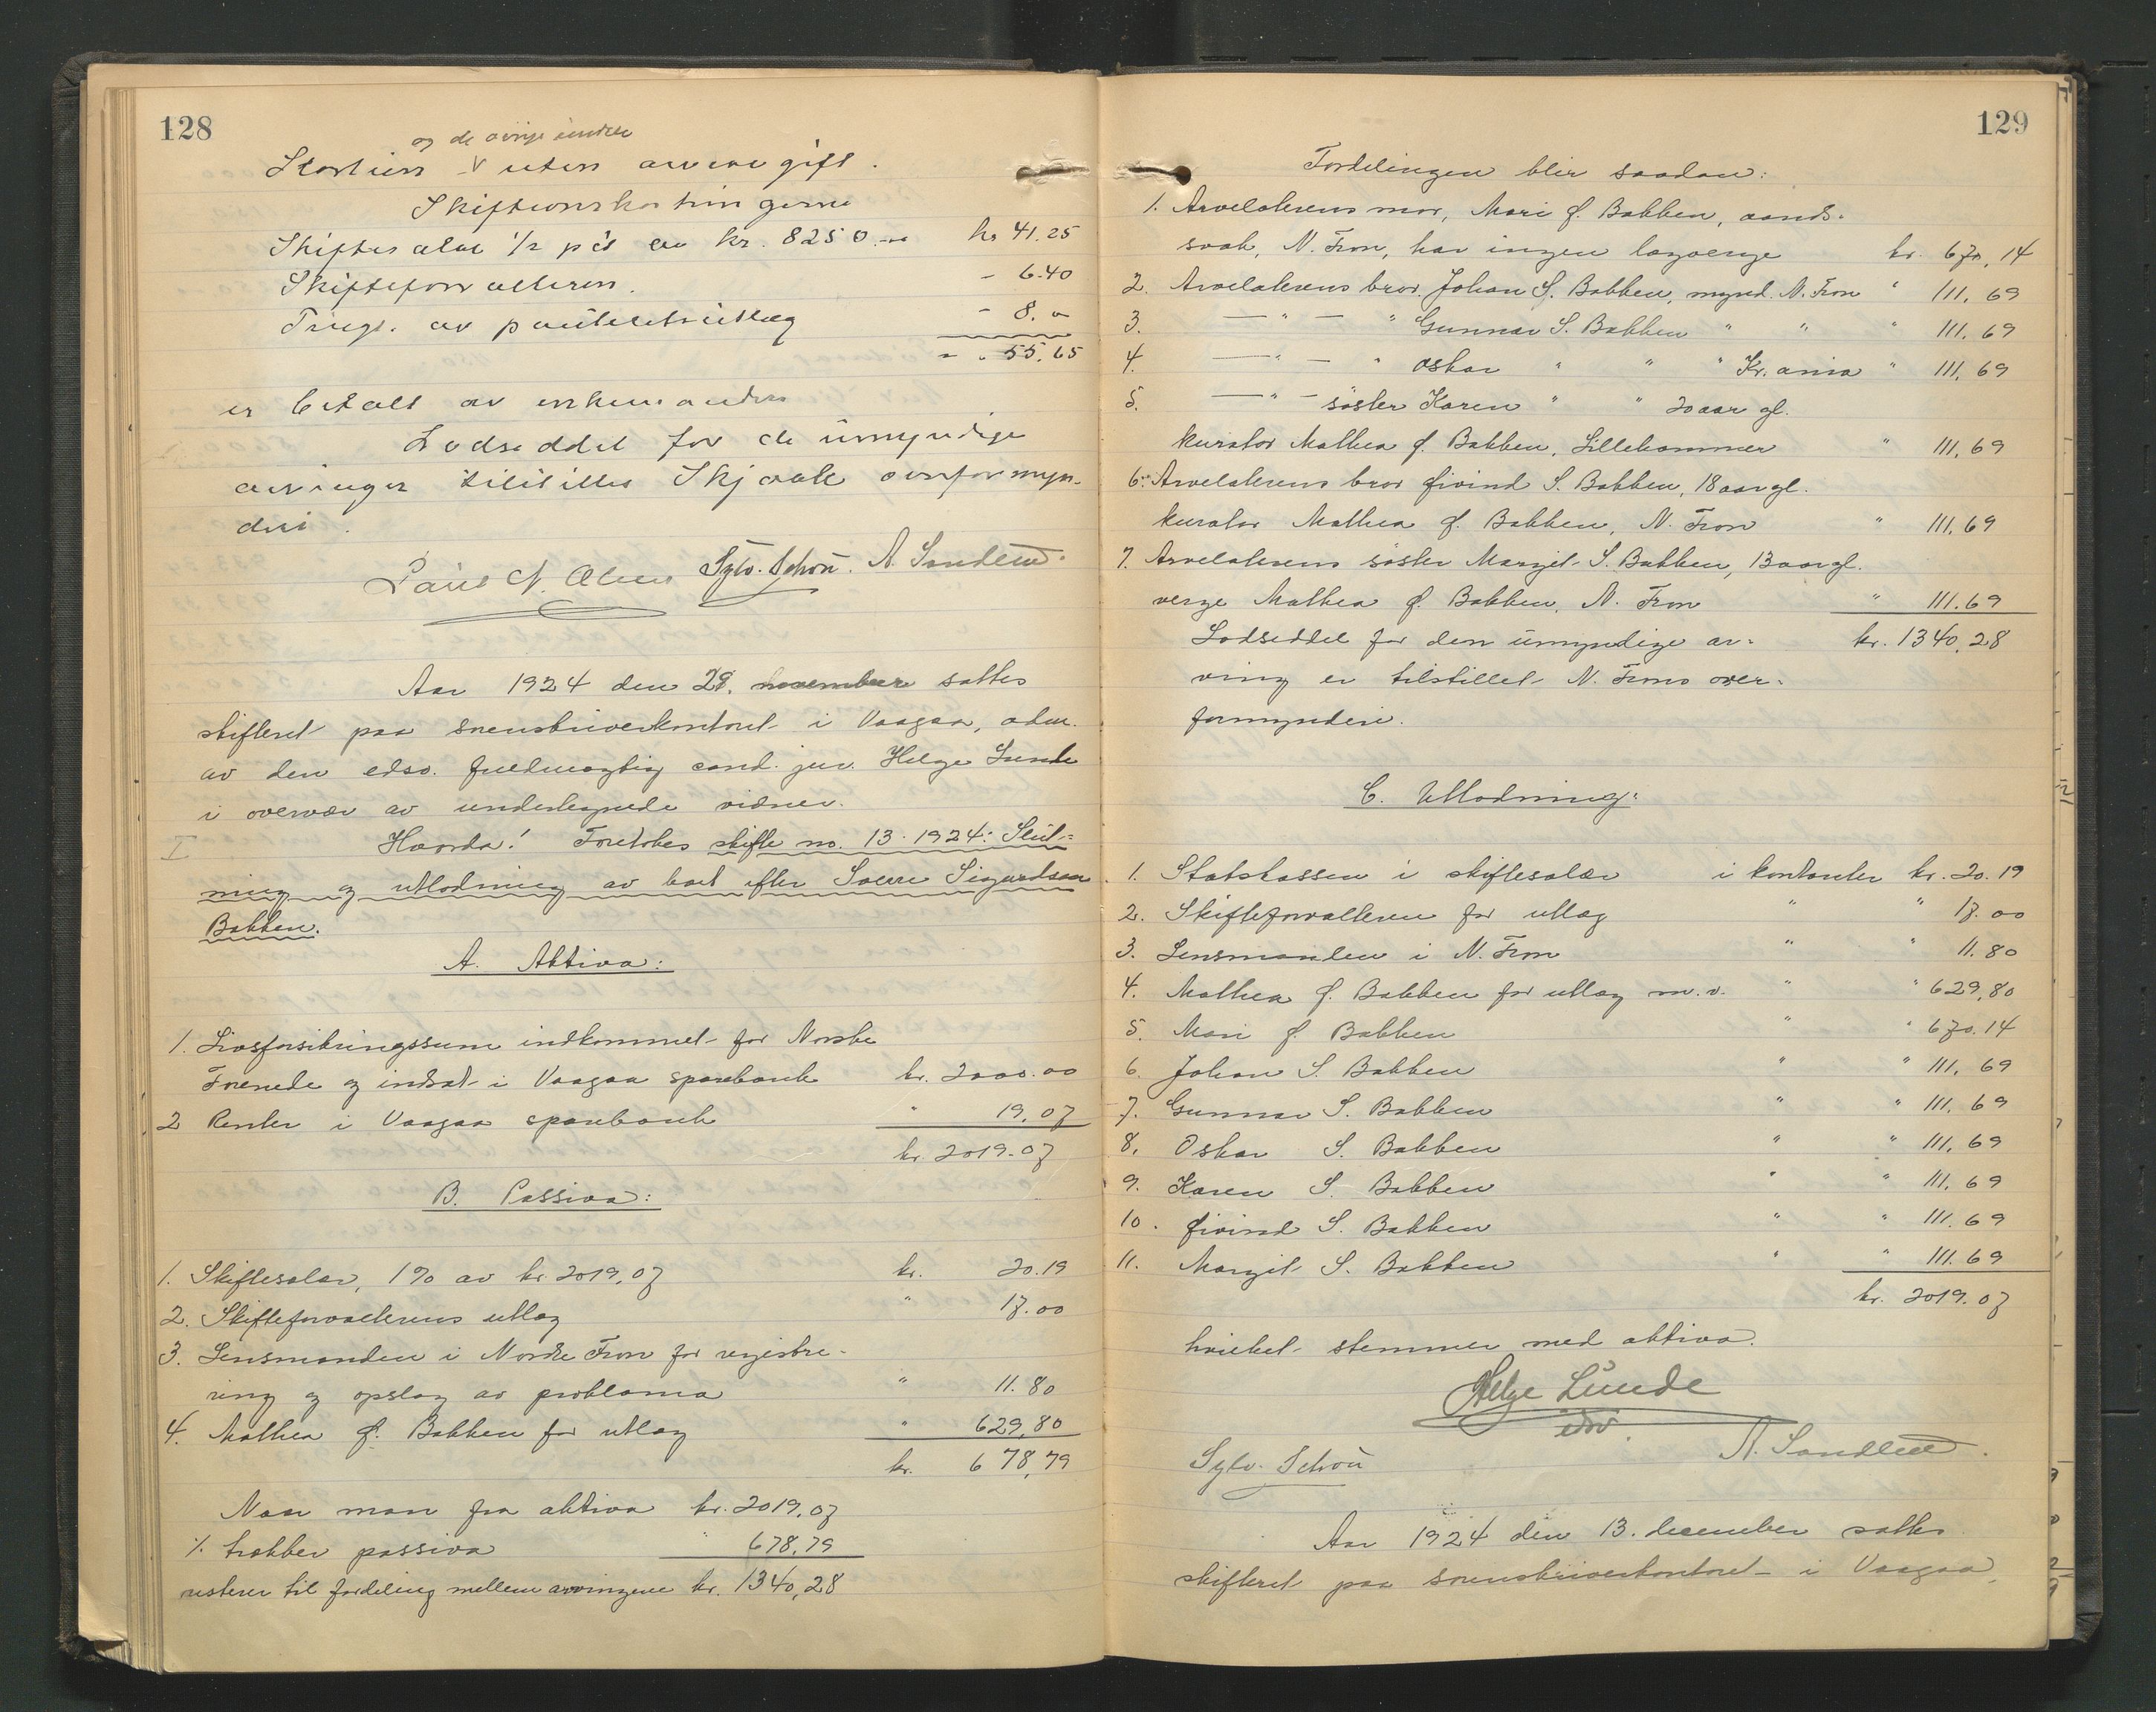 128
og de øvrige
uten arveavgift.
Skifteomkostningerne
Skiftesalær 1/2 pct av kr. 8250.- kr 41.25
Skifteforvalteren. - 6.40
Tingl. av panteutlæg - 8.00
- 55.65
er betalt av enkemanden
Lodseddel for de umyndige
arvinger tilstilles Skjaak overformyn-
deri.
Sylv. Schou. A. Sandlund.
Aar 1924 den 29. november sattes
skifteret paa sorenskriverkontoret i Vaagaa, adm.
av den edsv. fuldmægtig cand. jur. Helge Lunde
i overvær av undertegnede vidner.
Hvorda! Foretokes skifte no. 13. 1924: Slut-
ning og utlodning av boet efter Sverre Sigurdsen
Bakken.
A. Aktiva:
1. Livsforsikringssum indkommet for Norske
Forenede og indsat i Vaagaa sparebank kr. 2000.00
2 Renter i Vaagaa sparebank " 19,07
kr. 2019.07
B. Passiva:
1. Skiftesalær, 1% av kr. 2019,07 kr. 20.19
2. Skifteforvalterens utlæg " 17.00
3. Lensmanden i Nordre Fron for registre-
ring og opslag av proklama " 11.80
4. Mathea Ø. Bakken for utlæg " 629,80
kr. 678,79
Naar man fra aktiva kr. 2019,07
% trækker passiva " 678,79
resterer til fordeling mellem arvingene kr. 1340,28
129
Fordelingen blir saadan:
1. Arvelaterens mor, Mari Ø. Bakken, aands-
svak, N. Fron, har ingen lagverge kr. 670,14
2. Arvelaterens bror, Johan S. Bakken, mynd. N. Fron " 111,69
3. — " — " Gunnar S. Bakken " " " 111,69
4. — " — " Oskar " " " Kr.ania " 111,69
5. — " — søster Karen " " 20 aar gl.
kurator Mathea Ø. Bakken, Lillehammer " 111,69
6. Arvelaterens bror Øivind S. Bakken, 18 aar gl.
kurator Mathea Ø. Bakken, N. Fron " 111,69
7. Arvelaterens søster Margit S. Bakken, 13 aar gl.
verge Mathea Ø. Bakken, N. Fron " 111.69
Lodseddel for den umyndige ar- kr. 1340,28
ving er tilstillet N. Frons over-
formynderi.
C. Utlodning:
1. Statskassen i skiftesalær i kontanter kr. 20.19
2. Skifteforvalteren for utlæg " " 17.00
3. Lensmanden i N. Fron " " 11.80
4. Mathea Ø. Bakken for utlæg m.v. " " 629,80
5. Mari Ø. Bakken " " 670.14
6. Johan S. Bakken " " 111,69
7. Gunnar S. Bakken " " 111,69
8. Oskar S. Bakken " " 111,69
9. Karen S. Bakken " " 111,69
10. Øivind S. Bakken " " 111.69
11. Margit S. Bakken " " 111.69
kr. 2019.07
hvilket stemmer med aktiva.
Helge Lunde
edsv.
Sylv. Schou A. Sandlund.
Aar 1924 den 13. december sattes
skifteret paa sorenskriverkontoret i Vaagaa,